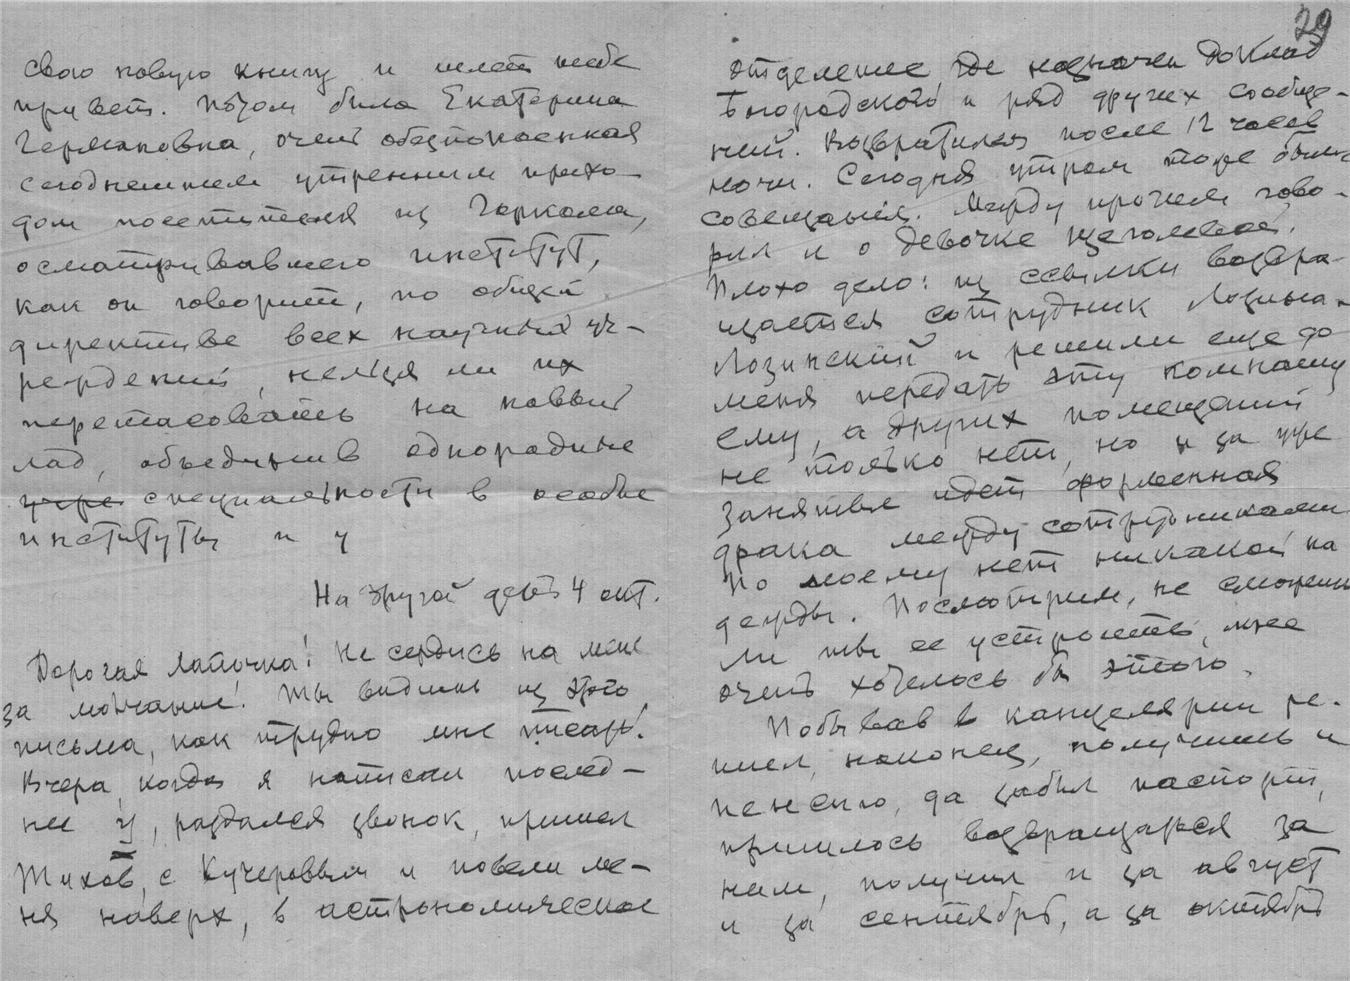 свою новую книгу и шлет тебе
привет. Потом была Екатерина
Германовна, очень обеспокоенная
сегодняшнем утренним прихо-
дом посетителя из Горкома,
осматривавшего институт,
как он говорит, по общей
директиве всех научных уч-
реждений, нельзя ли их
перетасовать на новый
лад, объединив однородные
учре специальности в особые
институты и у
На другой день 4 окт.
Дорогая Лапочка! Не сердись на меня
за молчание! Ты видишь из этого
письма, как трудно мне писать!
Вчера, когда я написал послед-
нее у, раздался звонок, пришел
Тихов, с Кучеровым и повели ме-
ня наверх, в астрономическое
29
отделение, где назначен доклад
Богородского и ряд других сообще-
ний. Возвратился после 12 часов
ночи. Сегодня утром тоже были
совещания. Между прочем гово-
рил и о девочке Щеголевой.
Плохо дело: из ссылки возвра-
щается сотрудник Лозина-
Лозинский и решили еще до
меня передать эту комнату
ему, а других помещений
не только нет, но и за уже
занятые идет форменная
драка между сотрудниками
По моему нет никакой на
дежды. Посмотрим, не сможешь
ли ты ее устроить, мне
очень хотелось бы этого.
Побывав в канцелярии ре-
шил, наконец, получить и
пенсию, да забыл паспорт,
пришлось возвращаться за
ним, получил и за август
и за сентябрь, а за октябрь